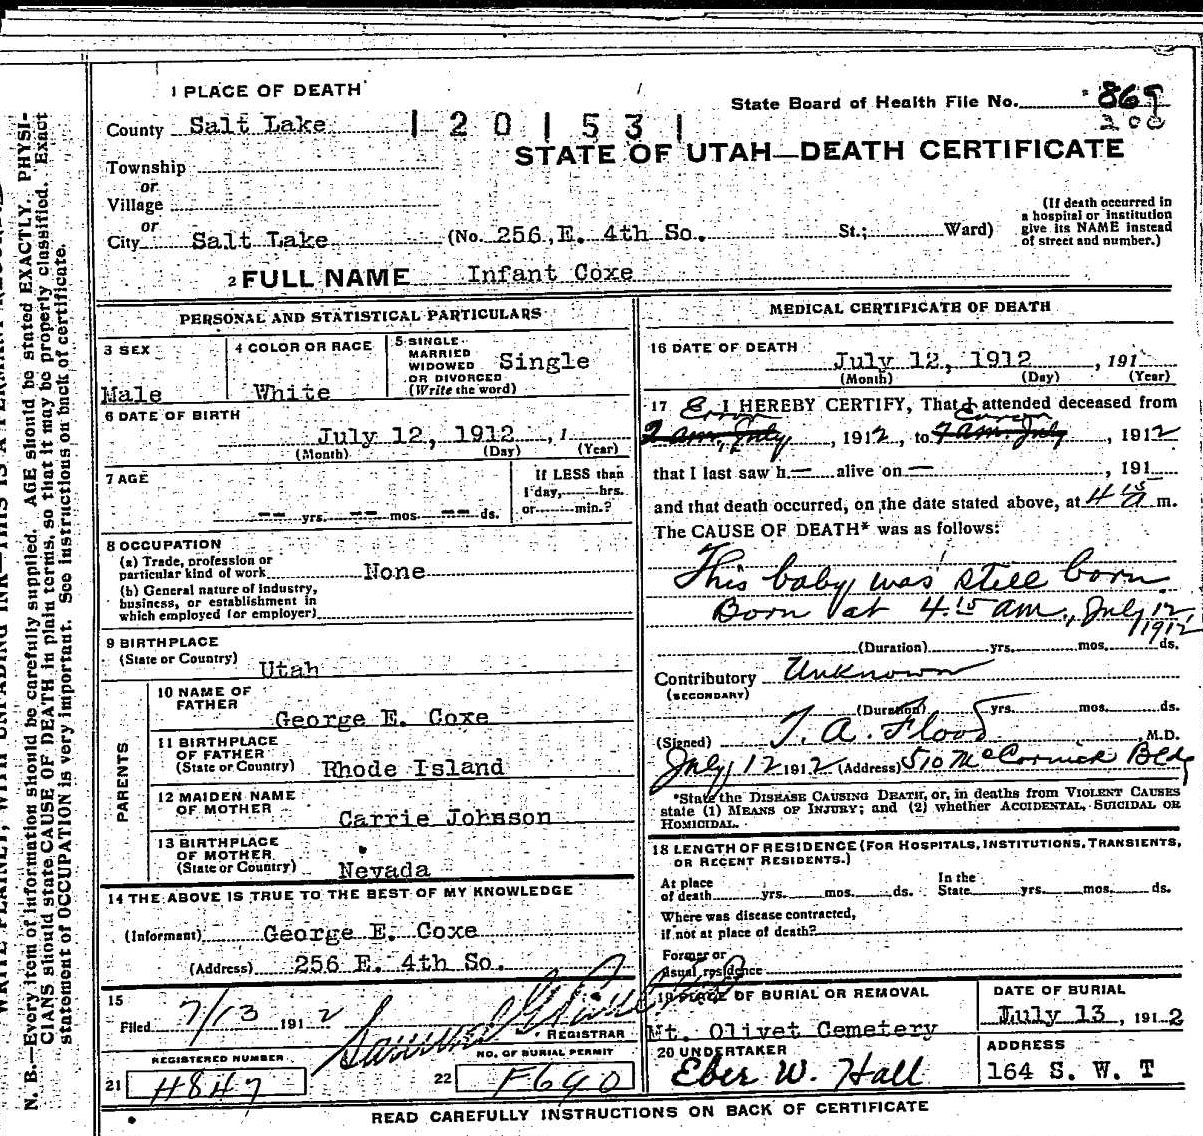 1 PLACE OF DEATH
State Board of Health File No. 865
200
County Salt Lake
1201531
STATE OF UTAH—DEATH CERTIFICATE
Township
or
Village
or
City Salt Lake (No. 256 E. 4th So. St.; Ward)
(If death occurred in a hospital or institution give its NAME instead of street and number.)
2 FULL NAME Infant Coxe
PERSONAL AND STATISTICAL PARTICULARS
3 SEX
Male
4 COLOR OR RACE
White
5 SINGLE
MARRIED
WIDOWED
OR DIVORCED
(Write the word)
Single
6 DATE OF BIRTH
July 12, 1912, 1
(Month) (Day) (Year)
7 AGE
-- yrs. -- mos. -- ds.
If LESS than
1 day, hrs.
or min.?
8 OCCUPATION
(a) Trade, profession or
particular kind of work None
(b) General nature of industry,
business, or establishment in
which employed (or employer)
9 BIRTHPLACE
(State or Country) Utah
PARENTS
10 NAME OF
FATHER
George E. Coxe
11 BIRTHPLACE
OF FATHER
(State or Country) Rhode Island
12 MAIDEN NAME
OF MOTHER Carrie Johnson
13 BIRTHPLACE
OF MOTHER
(State or Country) Nevada
14 THE ABOVE IS TRUE TO THE BEST OF MY KNOWLEDGE
(Informant) George E. Coxe
(Address) 256 E. 4th So.
15
Filed 7/13 1912
REGISTRAR
REGISTERED NUMBER
21 H847
NO. OF BURIAL PERMIT
22 F690
MEDICAL CERTIFICATE OF DEATH
16 DATE OF DEATH
July 12, 1912, 191
(Month) (Day) (Year)
17 Error I HEREBY CERTIFY, That I attended deceased from
2 am, July, 1912, to 4 am. July, 1912
that I last saw h— alive on —, 191
and that death occurred, on the date stated above, at 4 15 a m.
The CAUSE OF DEATH* was as follows:
This baby was still born
Born at 4.15 am, July 12,
1912
(Duration) yrs. mos. ds.
Contributory Unknown
(SECONDARY)
(Duration) yrs. mos. ds.
(Signed) T. A. Flood, M.D.
July 12 1912 (Address) 510 McCornick Bldg
*State the DISEASE CAUSING DEATH, or, in deaths from VIOLENT CAUSES
state (1) MEANS OF INJURY; and (2) whether ACCIDENTAL, SUICIDAL OR
HOMICIDAL.
18 LENGTH OF RESIDENCE (FOR HOSPITALS, INSTITUTIONS, TRANSIENTS,
OR RECENT RESIDENTS.)
At place
of death yrs. mos. ds.
In the
State yrs. mos. ds.
Where was disease contracted,
if not at place of death?
Former or
usual residence
19 PLACE OF BURIAL OR REMOVAL
Mt. Olivet Cemetery
DATE OF BURIAL
July 13, 1912
20 UNDERTAKER
Eber W. Hall
ADDRESS
164 S. W. T
READ CAREFULLY INSTRUCTIONS ON BACK OF CERTIFICATE
N. B.—Every item of information should be carefully supplied. AGE should be stated EXACTLY. PHYSI-
CIANS should state CAUSE OF DEATH in plain terms, so that it may be properly classified. Exact
statement of OCCUPATION is very important. See instructions on back of certificate.